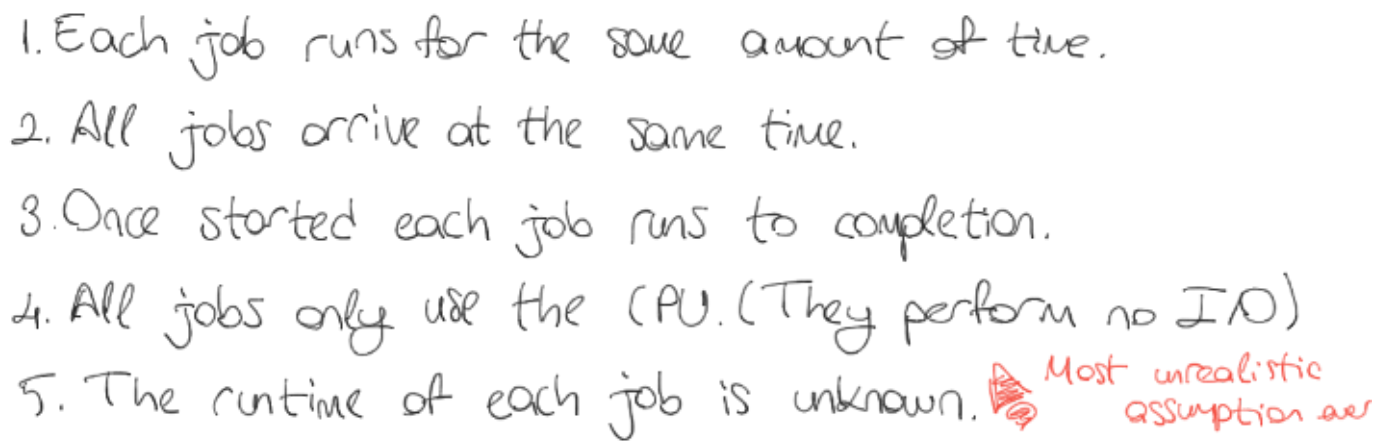 1. Each job runs for the same amount of time.
2. All jobs arrive at the same time.
3. Once started each job runs to completion.
4. All jobs only use the CPU. (They perform no IO)
5. The runtime of each job is unknown. Most unrealistic
assumption ever